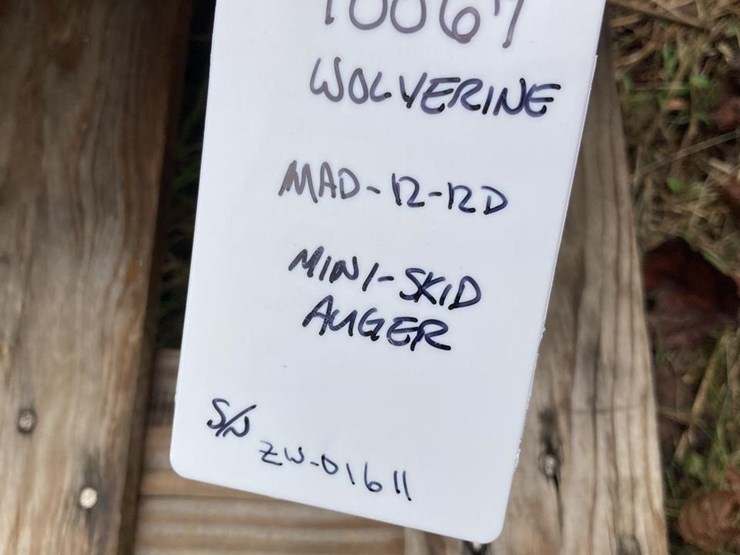 10067
WOLVERINE
MAD-12-12D
MINI-SKID
AUGER
S/N
ZW-01611